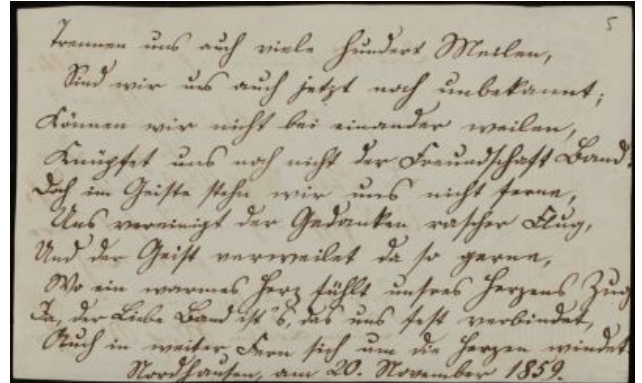 5
Trennen uns auch viele hundert Meilen,
Sind wir uns auch jetzt noch unbekannt;
Können wir nicht bei einander weilen,
Knüpfet uns noch nicht der Freundschaft Band.
Doch im Geiste stehn wir uns nicht ferne,
Uns vereinigt der Gedanken rascher Flug,
Und der Geist verweilet da so gerne,
Wo ein warmes Herz fühlt unsres Herzens Zug
Ja, der Liebe Band ist's, das uns fest verbindet,
Auch in weiter Fern sich um die Herzen windet
Nordhausen, am 20. November 1859.